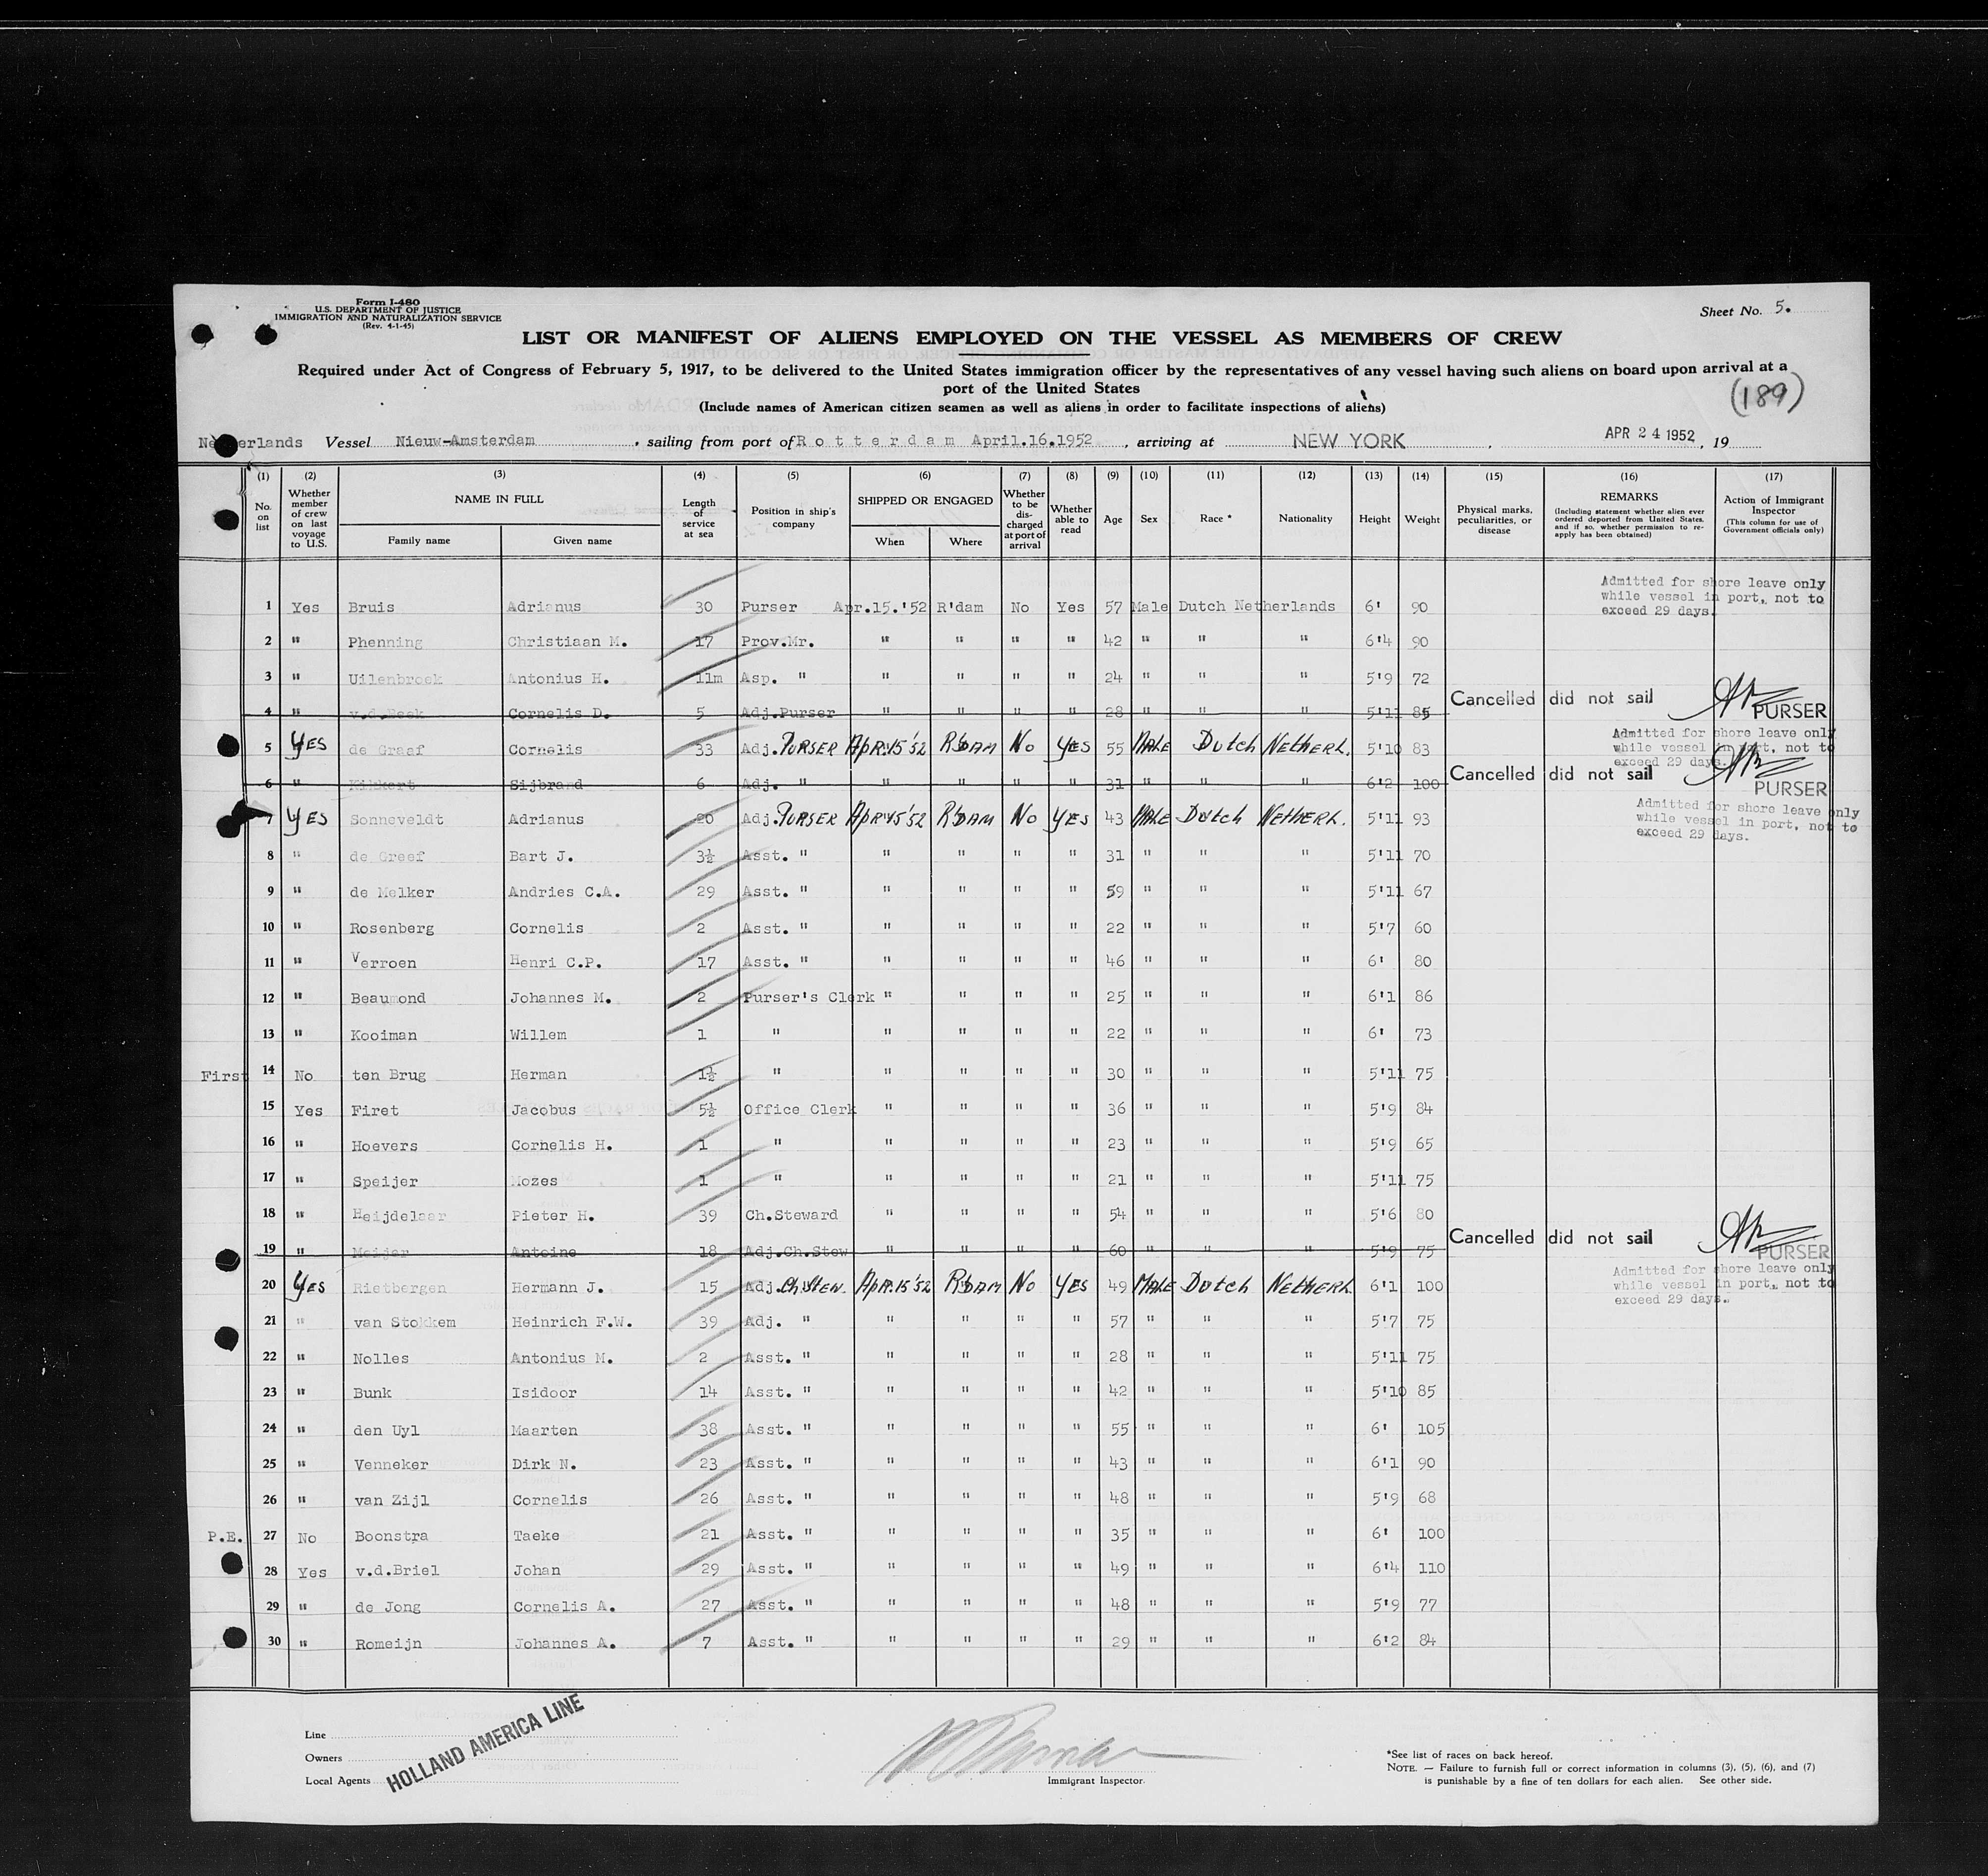 Form I-480
U.S. DEPARTMENT OF JUSTICE
IMMIGRATION AND NATURALIZATION SERVICE
(Rev. 4-1-45)
Sheet No. 5.
LIST OR MANIFEST OF ALIENS EMPLOYED ON THE VESSEL AS MEMBERS OF CREW
Required under Act of Congress of February 5, 1917, to be delivered to the United States immigration officer by the representatives of any vessel having such aliens on board upon arrival at a
port of the United States
(189)
(Include names of American citizen seamen as well as aliens in order to facilitate inspections of aliens)
Netherlands Vessel Nieuw-Amsterdam, sailing from port of Rotterdam April.16.1952, arriving at NEW YORK, APR 24 1952, 19
(1) (2) (3) (4) (5) (6) (7) (8) (9) (10) (11) (12) (13) (14) (15) (16) (17)
No. on list
Whether member of crew on last voyage to U.S.
NAME IN FULL
Family name Given name
Length of service at sea
Position in ship's company
SHIPPED OR ENGAGED
When Where
Whether to be discharged at port of arrival
Whether able to read
Age
Sex
Race *
Nationality
Height
Weight
Physical marks, peculiarities, or disease
REMARKS
(Including statement whether alien ever ordered deported from United States, and if so, whether permission to re-apply has been obtained)
Action of Immigrant Inspector
(This column for use of Government officials only)
Admitted for shore leave only
while vessel in port, not to
exceed 29 days.
1 Yes Bruis Adrianus 30 Purser Apr.15.'52 R'dam No Yes 57 Male Dutch Netherlands 6' 90
2 " Phenning Christiaan M. 17 Prov.Mr. " " " " 42 " " " 6'4 90
3 " Uilenbroek Antonius H. 11m Asp. " " " " " 24 " " " 5'9 72
Cancelled did not sail PURSER
4 " v.d.Beek Cornelis D. 5 Adj.Purser " " " " 28 " " " 5'11 85
Admitted for shore leave only
while vessel in port, not to
exceed 29 days.
5 YES de Graaf Cornelis 33 Adj.PURSER APR.15'52 R'DAM No YES 55 MALE Dutch Netherl. 5'10 83
Cancelled did not sail PURSER
6 " Kikkert Sijbrand 6 Adj. " " " " " 31 " " " 6'2 100
Admitted for shore leave only
while vessel in port, not to
exceed 29 days.
7 YES Sonneveldt Adrianus 20 Adj.PURSER APR.15'52 R'DAM No YES 43 MALE Dutch Netherl. 5'11 93
8 " de Greef Bart J. 3½ Asst. " " " " " 31 " " " 5'11 70
9 " de Melker Andries C.A. 29 Asst. " " " " " 59 " " " 5'11 67
10 " Rosenberg Cornelis 2 Asst. " " " " " 22 " " " 5'7 60
11 " Verroen Henri C.P. 17 Asst. " " " " " 46 " " " 6' 80
12 " Beaumond Johannes M. 2 Purser's Clerk " " " " 25 " " " 6'1 86
13 " Kooiman Willem 1 " " " " " 22 " " " 6' 73
First 14 No ten Brug Herman 1½ " " " " " 30 " " " 5'11 75
15 Yes Firet Jacobus 5½ Office Clerk " " " " 36 " " " 5'9 84
16 " Hoevers Cornelis H. 1 " " " " " 23 " " " 5'9 65
17 " Speijer Mozes 1 " " " " " 21 " " " 5'11 75
18 " Heijdelaar Pieter H. 39 Ch.Steward " " " " 54 " " " 5'6 80
Cancelled did not sail PURSER
19 " Meijer Antoine 18 Adj.Ch.Stew " " " " 60 " " " 5'9 75
Admitted for shore leave only
while vessel in port, not to
exceed 29 days.
20 YES Rietbergen Hermann J. 15 Adj.Ch.Stew. APR.15'52 R'DAM No YES 49 MALE Dutch Netherl. 6'1 100
21 " van Stokkem Heinrich F.W. 39 Adj. " " " " " 57 " " " 5'7 75
22 " Nolles Antonius M. 2 Asst. " " " " " 28 " " " 5'11 75
23 " Bunk Isidoor 14 Asst. " " " " " 42 " " " 5'10 85
24 " den Uyl Maarten 38 Asst. " " " " " 55 " " " 6' 105
25 " Venneker Dirk N. 23 Asst. " " " " " 43 " " " 6'1 90
26 " van Zijl Cornelis 26 Asst. " " " " " 48 " " " 5'9 68
P.E. 27 No Boonstra Taeke 21 Asst. " " " " " 35 " " " 6' 100
28 Yes v.d.Briel Johan 29 Asst. " " " " " 49 " " " 6'4 110
29 " de Jong Cornelis A. 27 Asst. " " " " " 48 " " " 5'9 77
30 " Romeijn Johannes A. 7 Asst. " " " " " 29 " " " 6'2 84
Line
Owners
Local Agents
HOLLAND AMERICA LINE
Immigrant Inspector.
*See list of races on back hereof.
NOTE. — Failure to furnish full or correct information in columns (3), (5), (6), and (7)
is punishable by a fine of ten dollars for each alien. See other side.